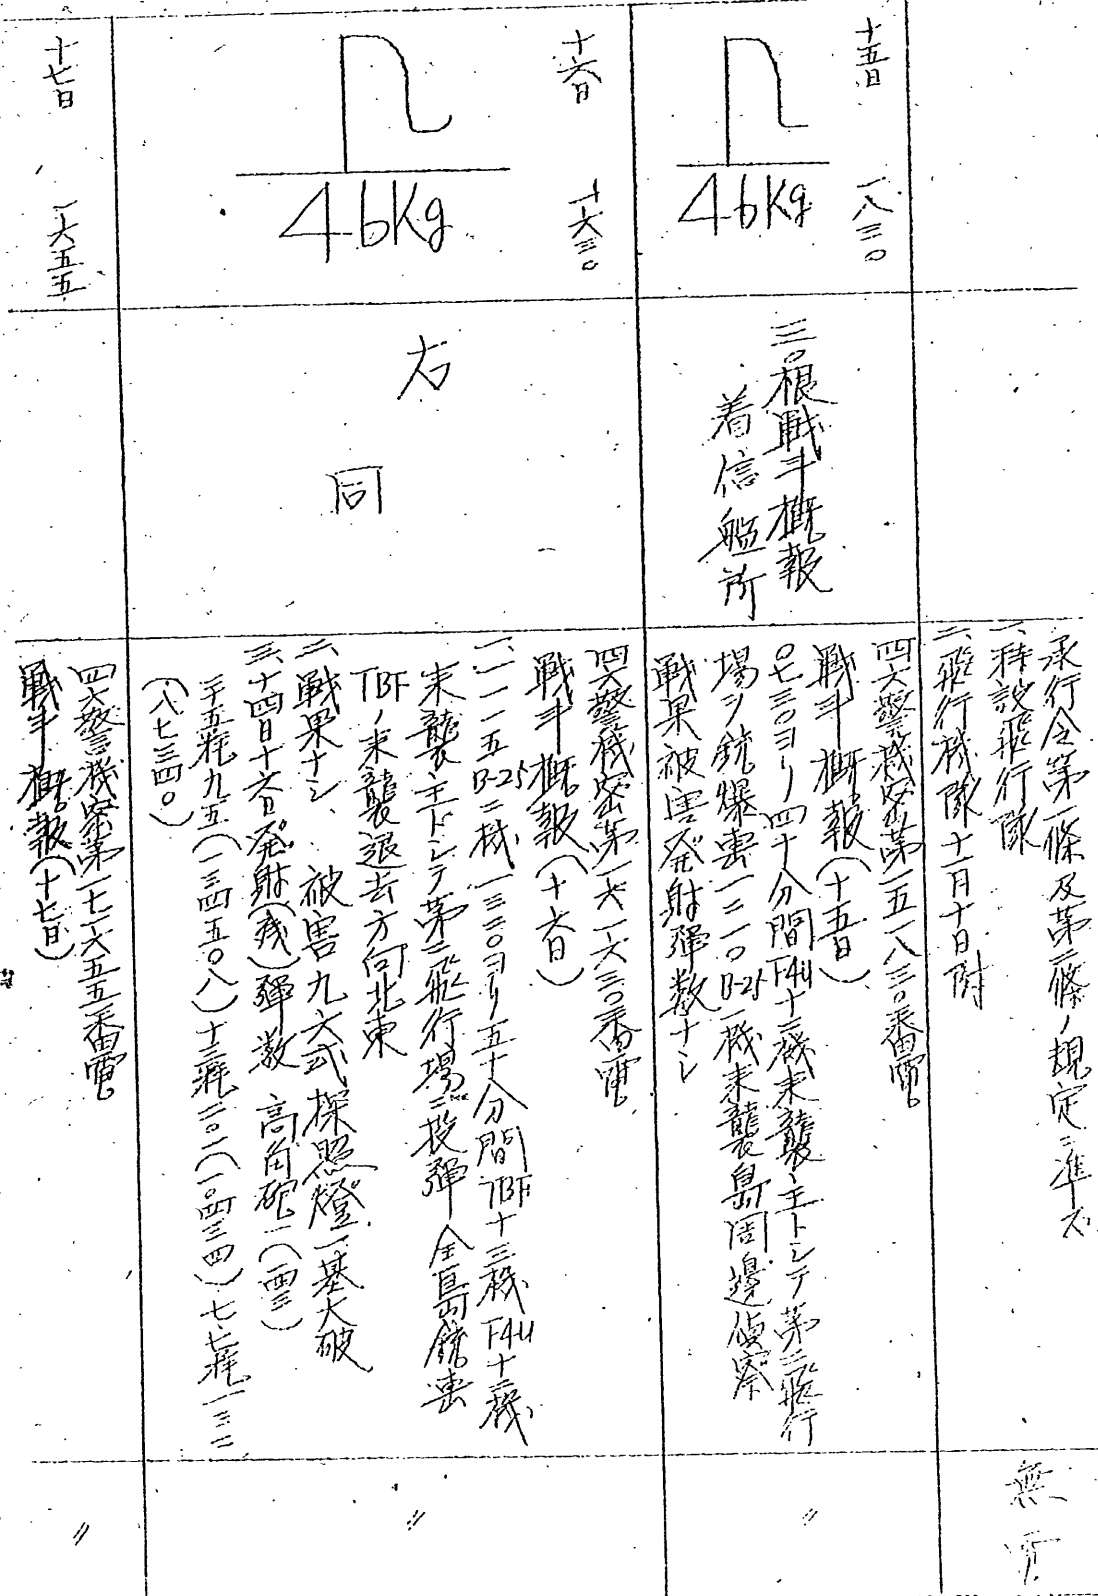 承行令第一條及第二條ノ規定ニ準ズ
一、特設飛行隊
二、飛行機隊十一月十日附
無電
十五日 一八三〇
46kg
三〇根戦斗概報
着信艦所
四六警機密第一五一八三〇番電
戦斗概報(十五日)
〇七三〇ヨリ四十分間F4U十二機来襲主トシテ第二飛行
場ヲ銃爆撃一二一〇B-25一機来襲島周邊偵察
戦果被害発射彈数ナシ
〃
十六日 一六三〇
46kg
右
同
四六警機密第一六一六三〇番電
戦斗概報(十六日)
一、一一一五B-25二機一三二〇ヨリ五十分間TBF十三機F4U十二機
来襲主トシテ第二飛行場ニ投彈全島銃撃
TBFノ来襲退去方向北東
二、戦果ナシ、被害九六式探照燈一基大破
三、十四日十六日発射(残)彈数 高角砲一(四三)
二十五粍九五(一三四五〇八)十三粍二〇一(一〇四三四)七.七粍一三二
(八七三四〇)
〃
十七日 一六五五
四六警機密第一七一六五五番電
戦斗概報(十七日)
〃